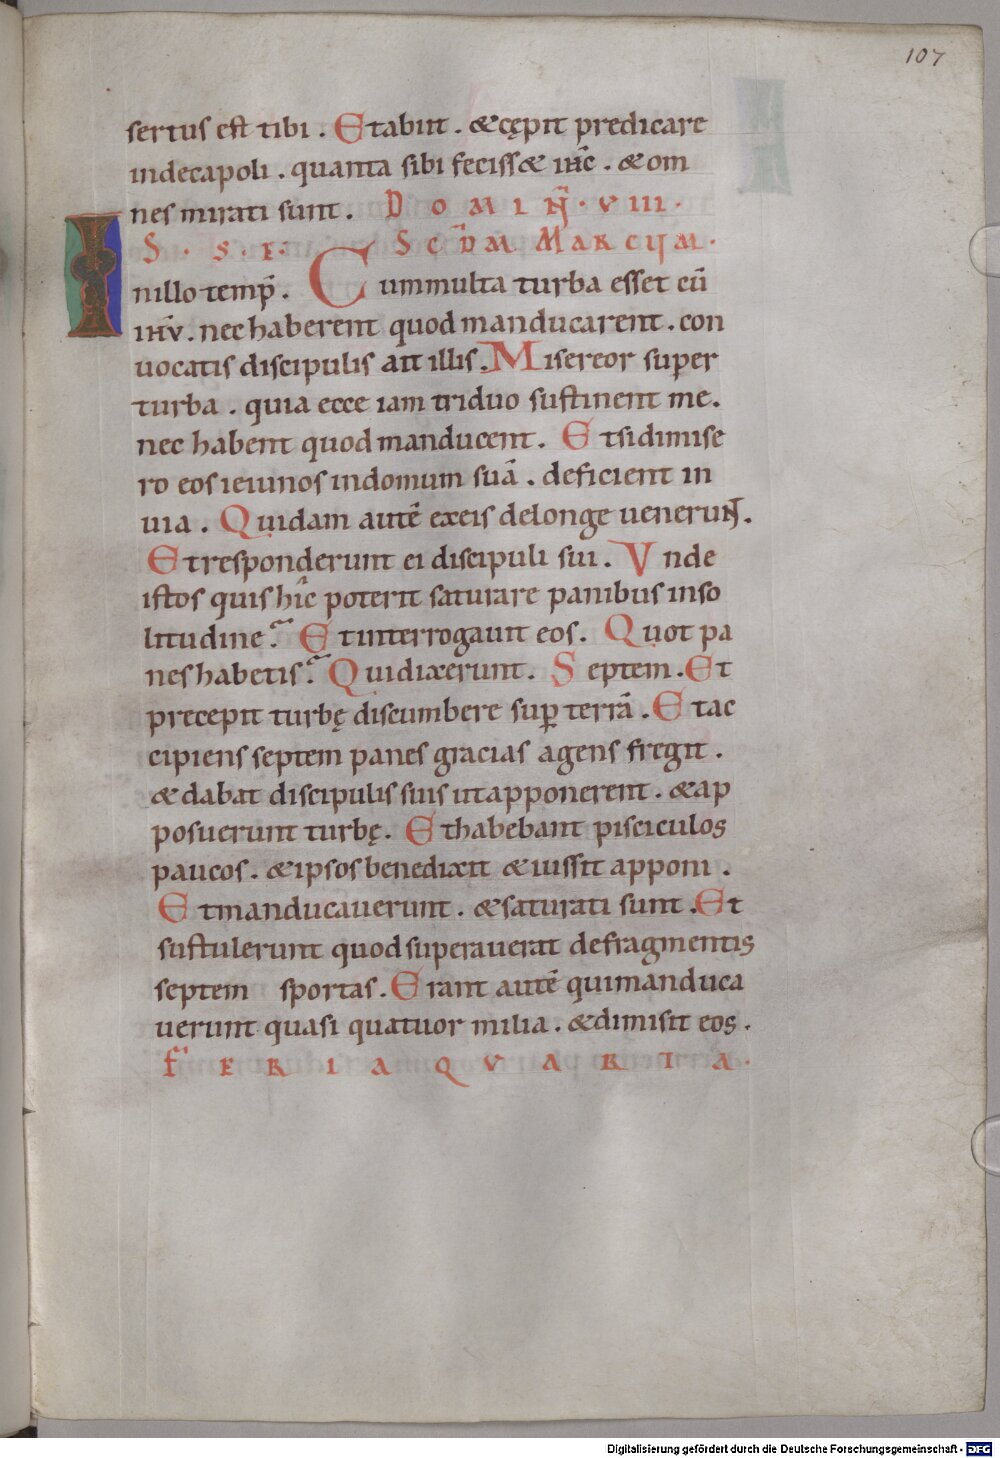 107
sertus est tibi . Et abiit . & cępit predicare
in decapoli . quanta sibi feciss& ih̅c . & om
nes mirati sunt . DOMIN̄ · VIII ·
S · S · E · SCD̄M MARCUM ·
In illo temp̅ . Cum multa turba esset cū
ih̅v . nec haberent quod manducarent . con
uocatis discipulis ait illis . Misereor super
turba . quia ecce iam triduo sustinent me .
nec habent quod manducent . Et si dimise
ro eos ieiunos in domum suā . deficient in
uia . Quidam autē ex eis de longe uenerunt .
Et responderunt ei discipuli sui . Vnde
istos quis hic poterit saturare panibus in so
litudine ? Et interrogauit eos . Quot pa
nes habetis ? Qui dixerunt . Septem . Et
precepit turbę discumbere sup̱ terrā . Et ac
cipiens septem panes gracias agens fregit .
& dabat discipulis suis ut apponerent . & ap
posuerunt turbę . Et habebant pisciculos
paucos . & ipsos benedixit & iussit apponi .
Et manducauerunt . & saturati sunt . Et
sustulerunt quod superauerat de fragmentis
septem sportas . Erant autē qui manduca
uerunt quasi quatuor milia . & dimisit eos .
FERIA QVARTA ·
Digitalisierung gefördert durch die Deutsche Forschungsgemeinschaft - DFG